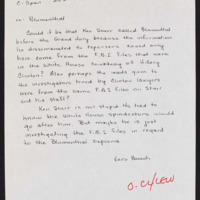 C-Span
re: Blumenthal
Could it be that Ken Starr called Blumenthal
before the Grand Jury because the information
he disseminated to reporters could only
have come from the F.B.I. Files that were
in the White House courtesy of Hillary
Clinton? Also perhaps the mads given to
the investigators hired by Clinton lawyers
were from the same F.B.I files on Starr
and his staff?
Ken Starr is not stupid. He had to
know the White House spinmeisters would
go after him. But maybe he is just
investigating the F.B.I files in regard
to the Blumenthal subpoena.